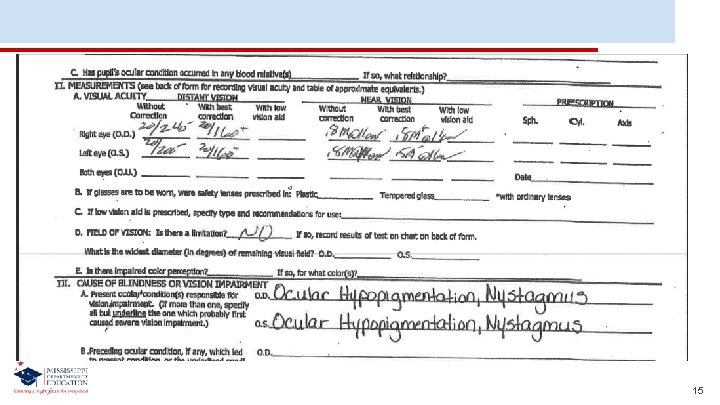 C. Has pupil's ocular condition occurred in any blood relative(s) If so, what relationship?
II. MEASUREMENTS (see back of form for recording visual acuity and table of approximate equivalents.)
A. VISUAL ACUITY DISTANT VISION NEAR VISION PRESCRIPTION
Without Correction With best correction With low vision aid Without correction With best correction With low vision aid Sph. Cyl. Axis
Right eye (O.D.) 20/160
Left eye (O.S.) 20/200 20/160
Both eyes (O.U.) Date
B. If glasses are to be worn, were safety lenses prescribed in: Plastic Tempered glass *with ordinary lenses
C. If low vision aid is prescribed, specify type and recommendations for use:
D. FIELD OF VISION: Is there a limitation? NO If so, record results of test on chart on back of form.
What is the widest diameter (in degrees) of remaining visual field? O.D. O.S.
E. Is there impaired color perception? If so, for what color(s)?
III. CAUSE OF BLINDNESS OR VISION IMPAIRMENT
A. Present ocular condition(s) responsible for O.D. Ocular Hypopigmentation, Nystagmus
vision impairment. (If more than one, specify
all but underline the one which probably first
caused severe vision impairment.) O.S. Ocular Hypopigmentation, Nystagmus
B. Preceding ocular condition, if any, which led O.D.
MISSISSIPPI
DEPARTMENT OF
EDUCATION
Ensuring a bright future for every child
15